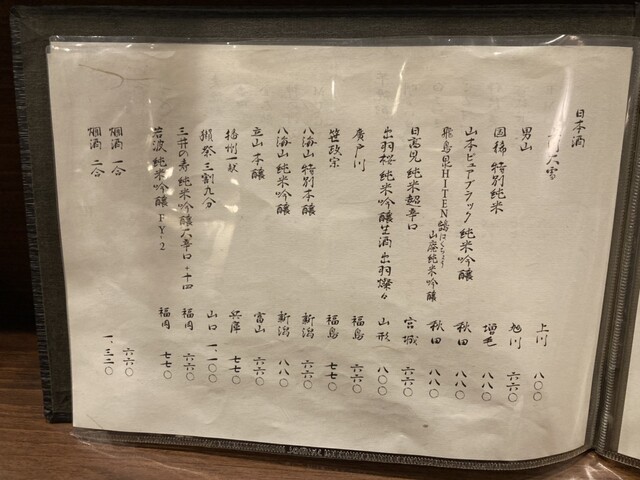 日本酒
大雪 上川 八〇〇
男山 旭川 六六〇
国稀 特別純米 増毛 八八〇
山本ピュアブラック 純米吟醸 秋田 八八〇
飛良泉HITEN鵠はくちょう 山廃純米吟醸 秋田 八八〇
日高見 純米超辛口 宮城 六六〇
出羽桜 純米吟醸生酒 出羽燦々 山形 八〇〇
廣戸川 福島 六六〇
笹政宗 福島 七七〇
八海山 特別本醸 新潟 六六〇
八海山 純米吟醸 新潟 八八〇
立山 本醸 富山 六六〇
播州一献 兵庫 七七〇
獺祭 三割九分 山口 一、一〇〇
三井の寿 純米吟醸大辛口 +十四 福岡 六六〇
若波 純米吟醸 FY-2 福岡 七七〇
燗酒 一合 六六〇
燗酒 二合 一、三二〇